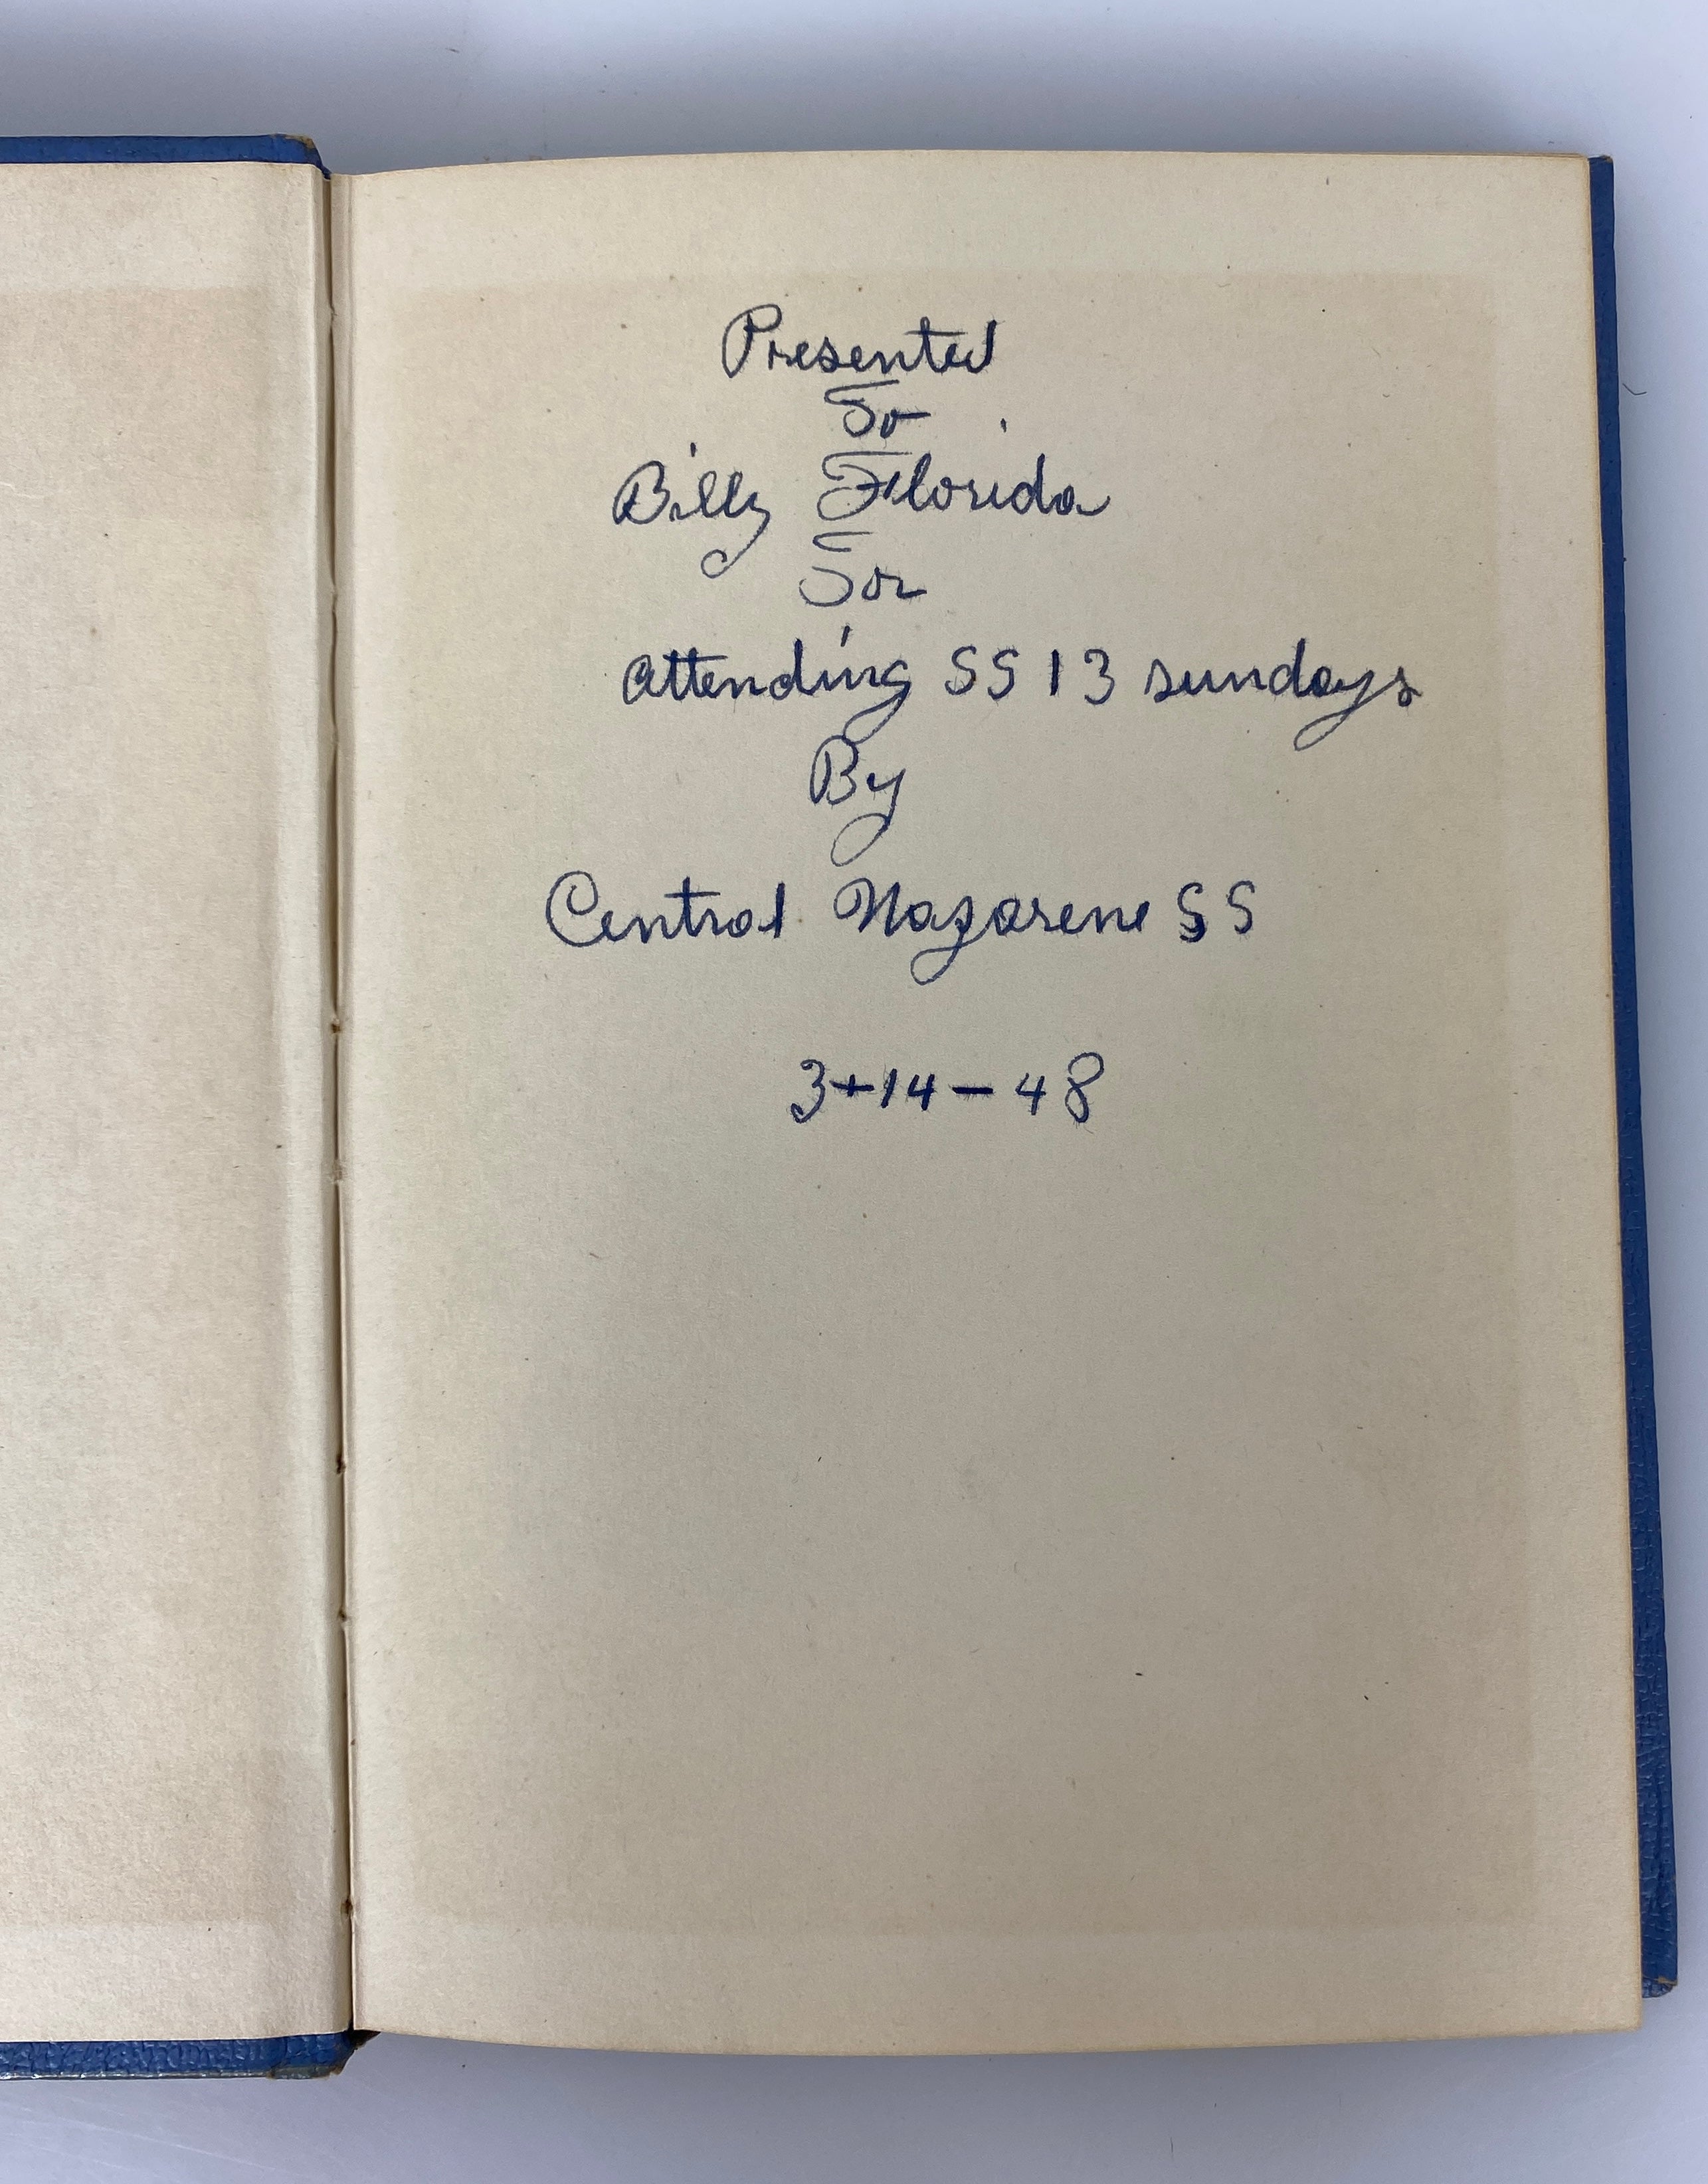 Presented
To
Billy Florida
For
Attending SS 13 sundays
By
Central Nazarene SS
3-14-48